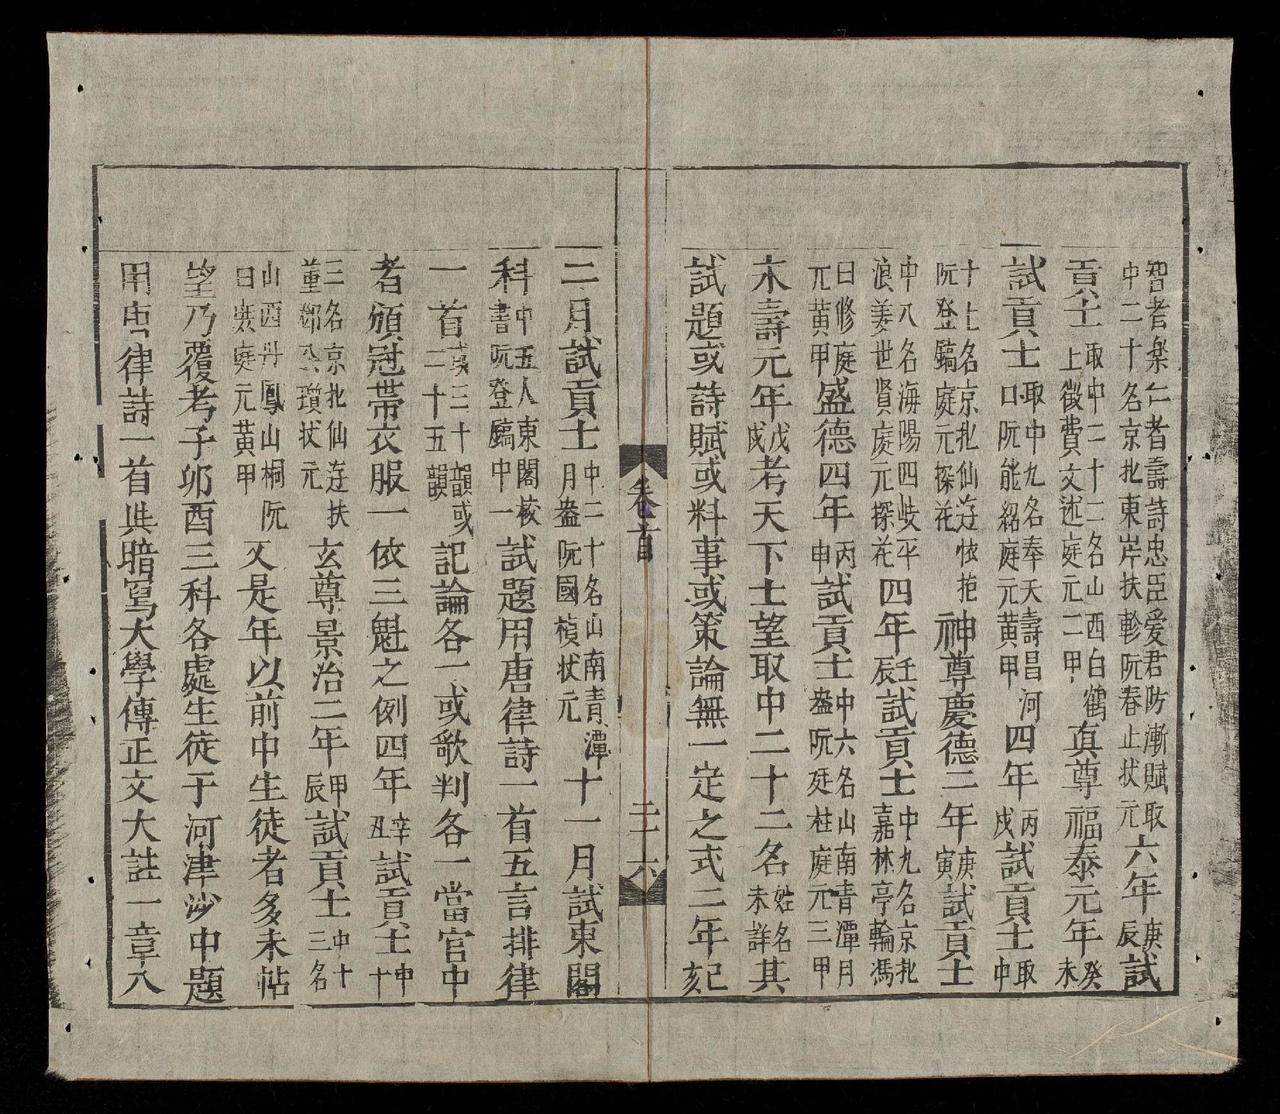 智者樂仁者壽詩忠臣愛君防漸賦取中二十名京北東岸扶軫阮春止狀元六年庚辰試
貢士取中二十二名山西白鶴上徵費文述庭元二甲真尊福泰元年癸未
試貢士取中九名奉天壽昌河口阮能紹庭元黃甲四年丙戌試貢士取中
十七名京北仙遊懷抱阮登鎬庭元探花神尊慶德二年庚寅試貢士
中八名海陽四岐平浪姜世賢庭元探花四年壬辰試貢士中九名京北嘉林亭輪馮
曰修庭元黃甲盛德四年丙申試貢士中六名山南青潭月盎阮廷柱庭元三甲
永壽元年戊戌考天下士望取中二十二名姓名未詳其
試題或詩賦或料事或策論無一定之式二年己亥
卷首 二十六
二月試貢士中二十名山南青潭月盎阮國楨狀元十一月試東閣
科中五人東閣校書阮登鎬中一試題用唐律詩一首五言排律
一首或三十韻或二十五韻記論各一或歌判各一當官中
者頒冠帶衣服一依三魁之例四年辛丑試貢士中十
三名京北仙遊扶董鄧公瓚狀元玄尊景治二年甲辰試貢士中十三名
山西丹鳳山桐阮曰庭元黃甲又是年以前中生徒者多未帖
望乃覆考子卯酉三科各處生徒于河津沙中題
用古律詩一首共暗寫大學傳正文大註一章八